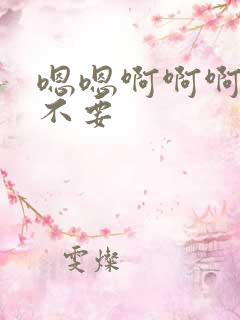 嗯嗯啊啊啊
不要
雯燦